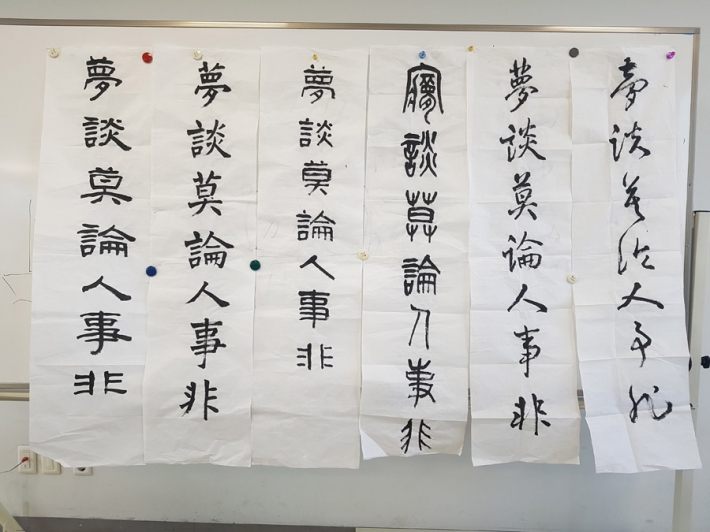 夢談莫論人事非
夢談莫論人事非
夢談莫論人事非
夢談莫論人事非
夢談莫論人事非
夢談莫論人事非